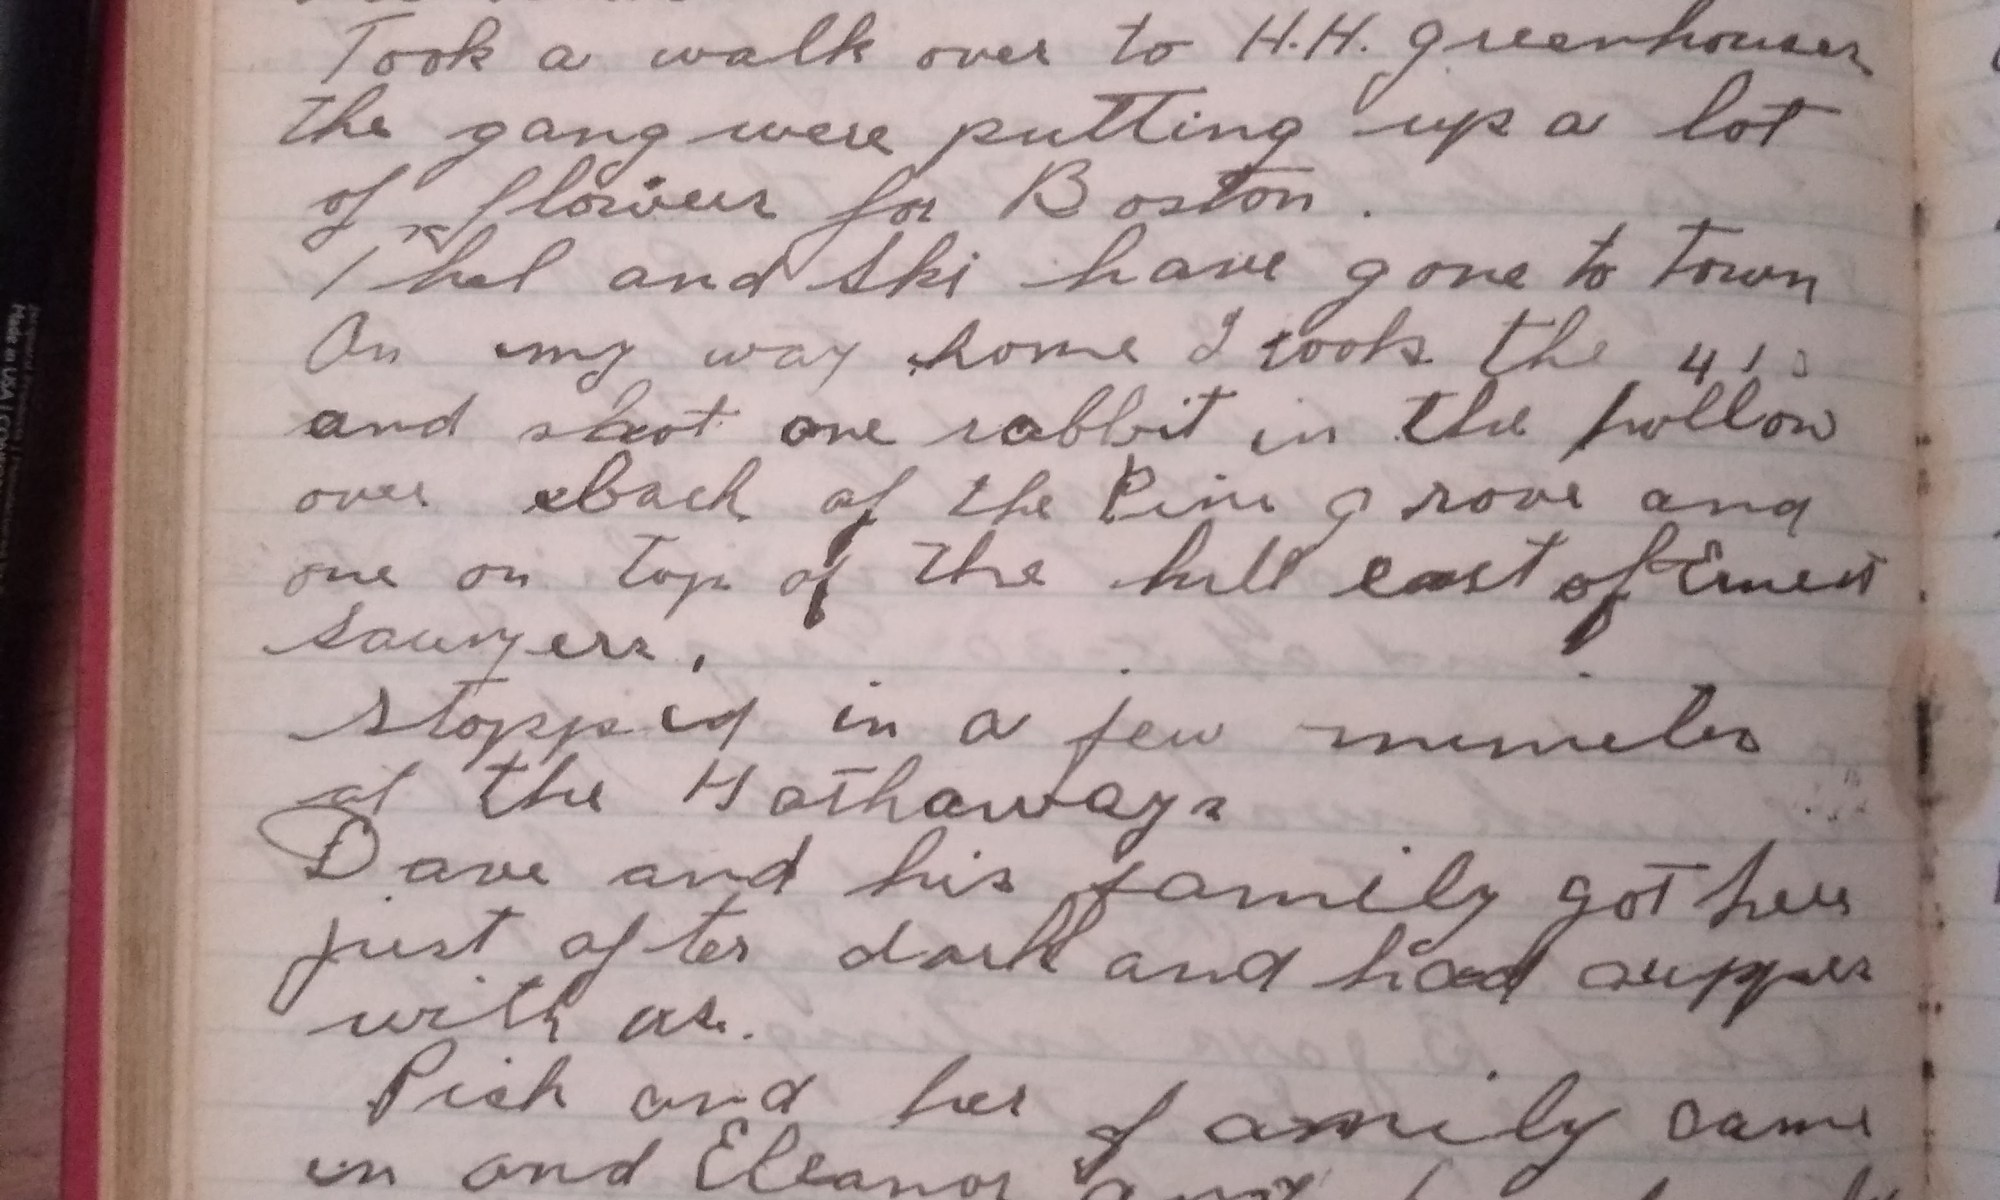 Took a walk over to H.H. greenhouses
the gang were putting up a lot
of flowers for Boston.
Thel and Ski have gone to town
On my way home I took the 410
and shot one rabbit in the hollow
over back of the Pine grove and
one on top of the hill east of Ernest
Sawyers.
Stopped in a few minutes
at the Hathaways
Dave and his family got here
just after dark and had supper
with us.
Pish and her family came
in and Eleanor
Made in USA